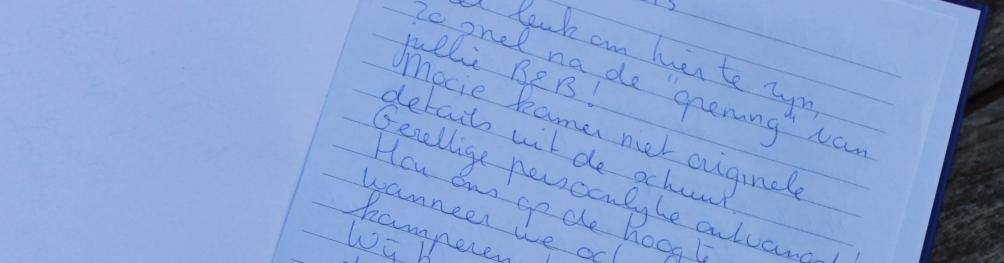 leuk om hier te zijn,
zo snel na de "opening" van
jullie B&B!
Mooie kamer met originele
details uit de schuur.
Gezellige persoonlijke ontvangst!
Hou ons op de hoogte
wanneer we
kamperen
Wij